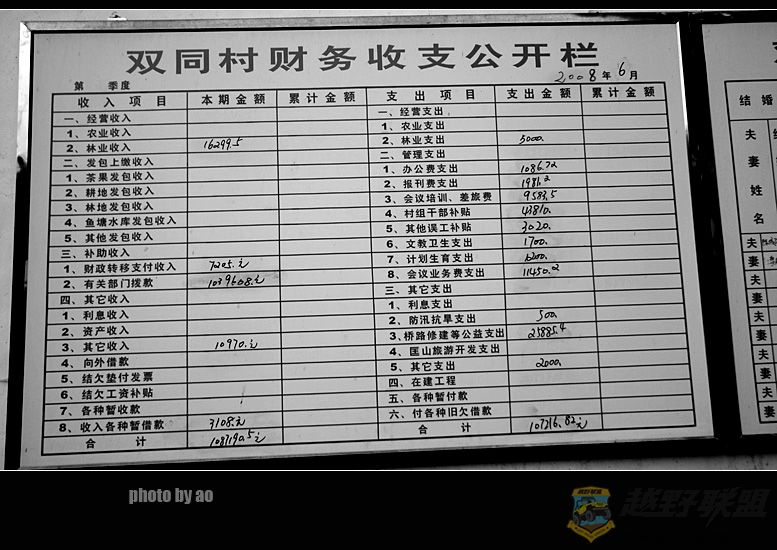 双同村财务收支公开栏
2008年6月
第 季度
收入项目 本期金额 累计金额 支出项目 支出金额 累计金额
一、经营收入 一、经营支出
1、农业收入 1、农业支出
2、林业收入 16299.5 2、林业支出 5000.
二、发包上缴收入 二、管理支出
1、茶果发包收入 1、办公费支出 1086.72
2、耕地发包收入 2、报刊费支出 1981.2
3、林地发包收入 3、会议培训、差旅费 9583.5
4、鱼塘水库发包收入 4、村组干部补贴 43810.
5、其他发包收入 5、其他误工补贴 3020.
三、补助收入 6、文教卫生支出 1700.
1、财政转移支付收入 7205.元 7、计划生育支出 6200.
2、有关部门拨款 8、会议业务费支出 11450.2
四、其它收入 三、其它支出
1、利息收入 1、利息支出
2、资产收入 2、防汛抗旱支出 500.
3、其它收入 10970.元 3、桥路修建等公益支出 25885.4
4、向外借款 4、匡山旅游开发支出
5、结欠垫付发票 5、其它支出 2000.
6、结欠工资补贴 四、在建工程
7、各种暂收款 五、各种暂付款
8、收入各种暂借款 3108.元 六、付各种旧欠借款
合计 合计 107216.82元
结婚
夫妻姓名
夫
妻
夫
妻
夫
妻
夫
妻
夫
妻
photo by ao
越野联盟